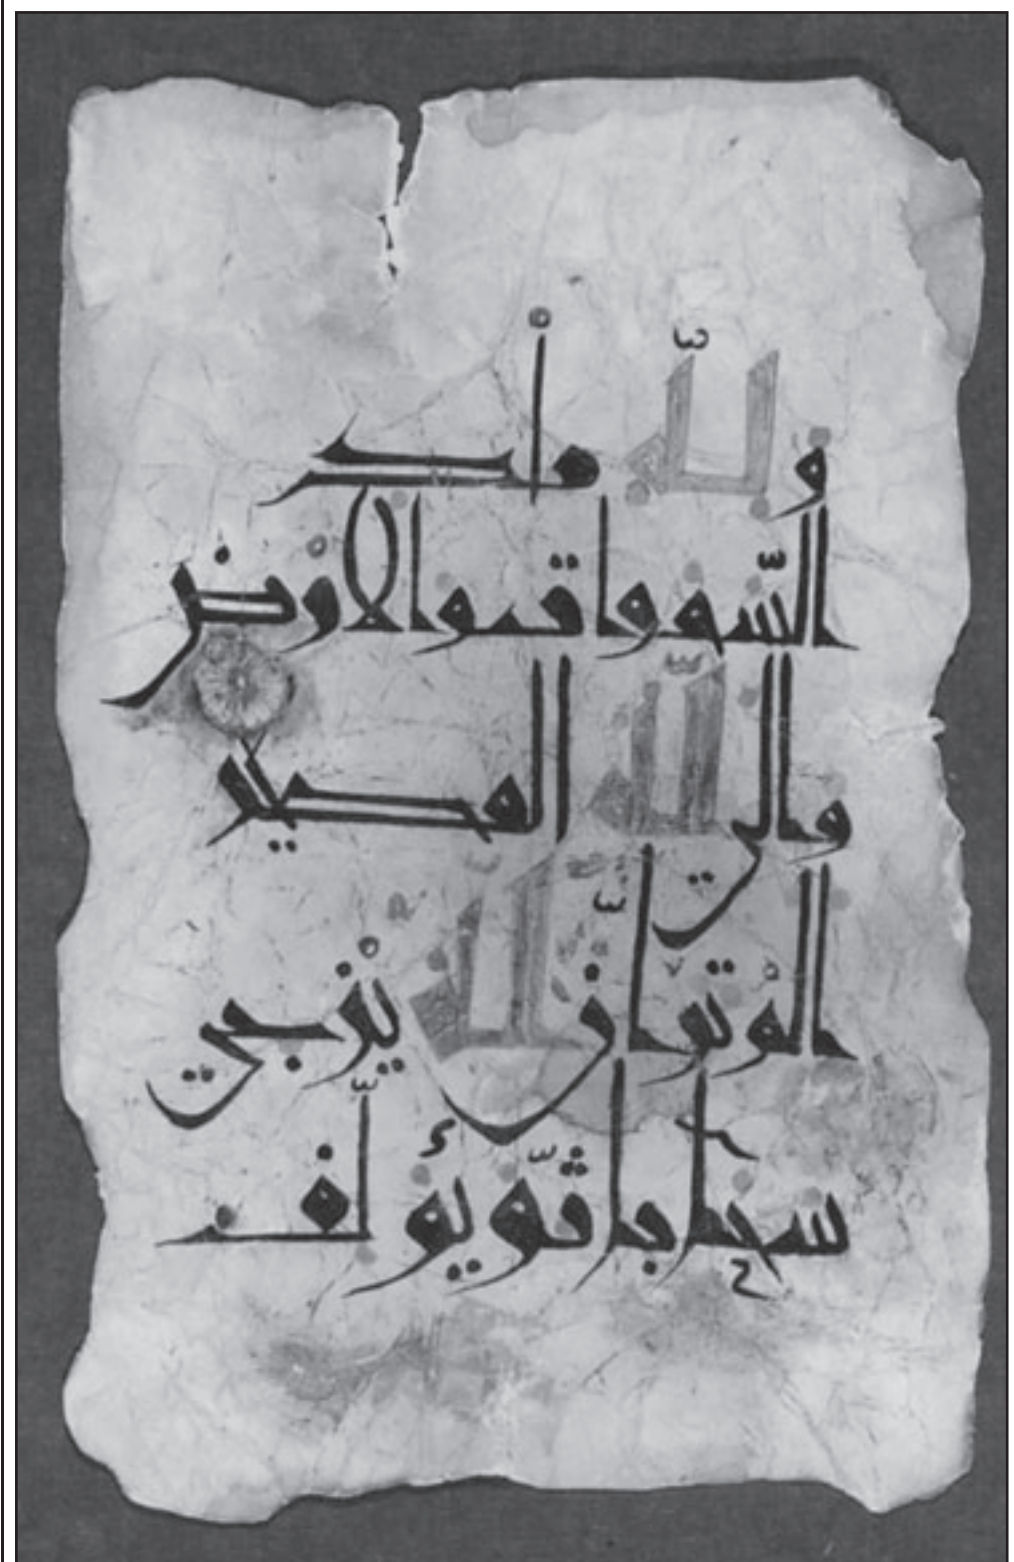 ولله ملك
السّموات والارض
والى اللّه المصير
الم تر انّ اللّه يزجي
سحابا ثمّ يؤلّف